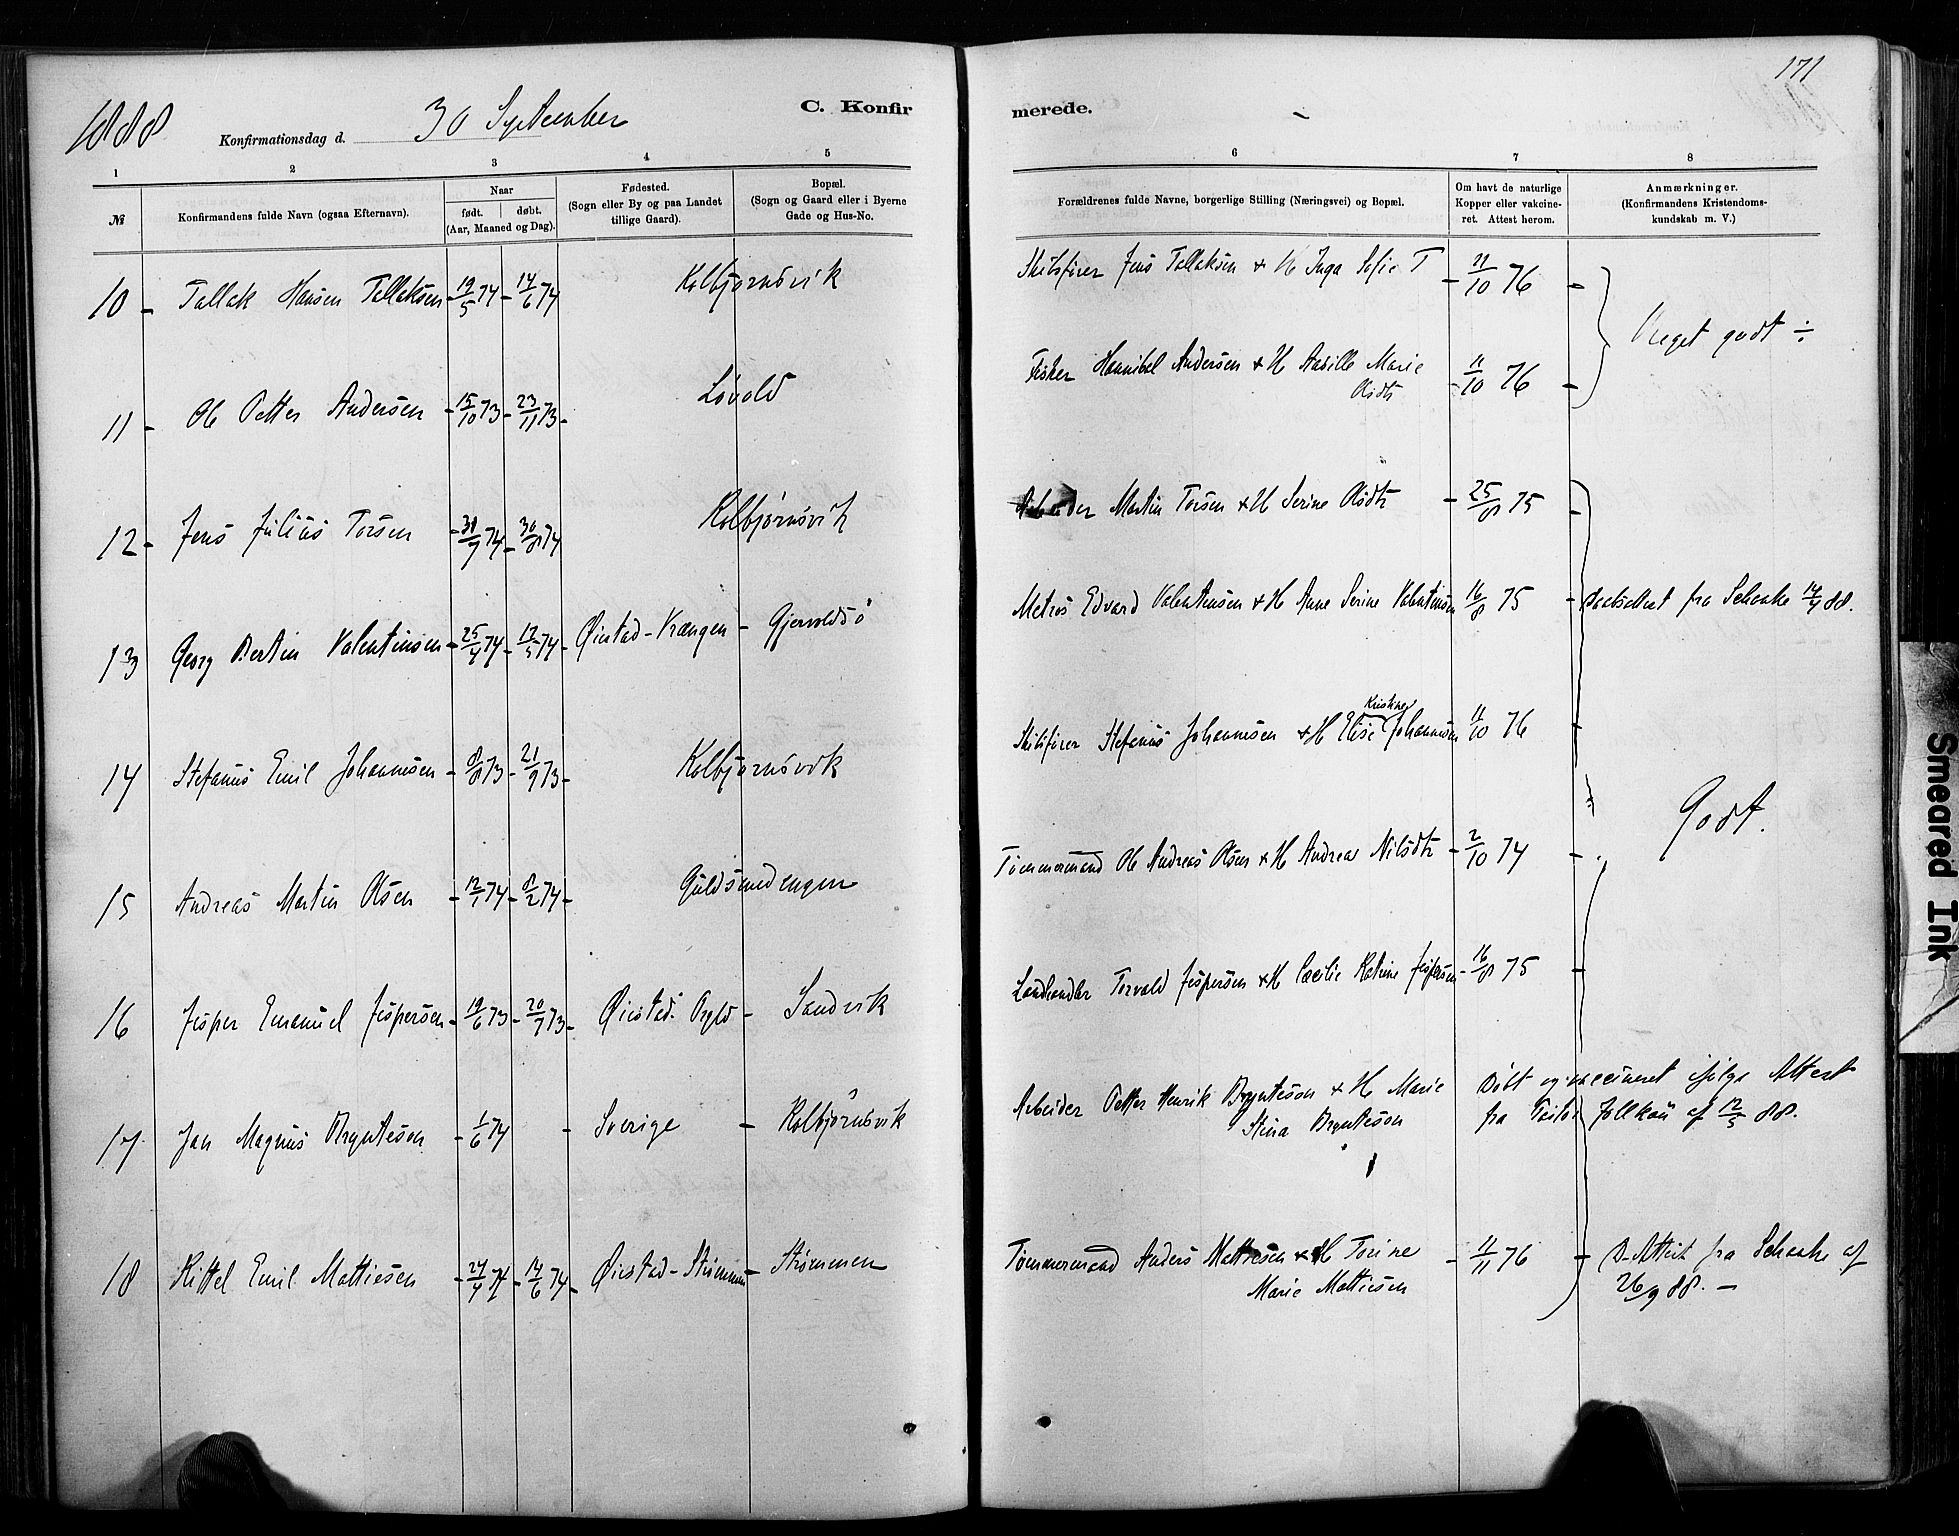 171
1888
Konfirmationsdag d. 30 September
C. Konfirmerede.
1 2 3 4 5 6 7 8
№
Konfirmandens fulde Navn (ogsaa Efternavn).
Naar
født. døbt.
(Aar, Maaned og Dag).
Fødested.
(Sogn eller By og paa Landet
tillige Gaard).
Bopæl.
(Sogn og Gaard eller i Byerne
Gade og Hus-No.
Forældrenes fulde Navne, borgerlige Stilling (Næringsvei) og Bopæl.
Om havt de naturlige
Kopper eller vakcine-
ret. Attest herom.
Anmærkninger.
(Konfirmandens Kristendoms-
kundskab m. V.)
10 - Tallak Hansen Tallaksen - 19/5 74 - 14/6 74 Kolbjørnsvik Skibsfører Jens Tallaksen + H Inga Sofie T - 11/10 76 -
Meget godt ÷
11 - Ole Petter Andersen - 15/10 73 - 23/11 73 - Løvold Fisker Hannibal Andersen + H Marie
Olsdtr - 11/10 76 -
12 - Jens Julius Torsen - 74 - 30/8 74 Kolbjørnsvik Arbeider Martin Torsen + H Serine Olsdtr - 25/8 75 -
13 Georg Bertin Valentinsen - 25/4 74 - 74 - Øiestad - Vrængen - Gjervoldsø Matros Edvard Valentinsen + H Anne Serine Valentinsen 16/8 75 - fra Schanke 88.
14 Stefanus Emil Johannesen - 8/8 73 - 21/9 73 - Kolbjørnsvik Skibsfører Stefanus Johannesen + H Elise Kristine Johannesen 11/10 76 -
Godt.
15 Andreas Martin Olsen - 12/1 74 - 8/2 74 - Guldsmedengen Tømmermand Ole Andreas Olsen + H Andrea Nilsdtr - 2/10 74 -
16 Jesper Emanuel Jespersen - 19/6 73 - 20/7 73 - Øiestad - Sandvik Landhandler Torvald Jespersen + H Cæcilie Katrine Jespersen - 16/8 75 -
17. Jan Magnus Bryntesson - 1/6 74 - Sverige - Kolbjørnsvik Arbeider Petter Henrik Bryntesson + H Marie
Stina Bryntesson
Døbt og vaccineret ifølge Attest
fra af 12/5 88.
18 Kittel Emil Mathiesen - 24/4 74 - 14/6 74 - Øiestad - Strømmen - Strømmen Tømmermand Anders Mathiesen + H Torine
Marie Mathiesen - 11/11 76 - D-Attest fra Schanke af
26/9 88. -
Smeared Ink